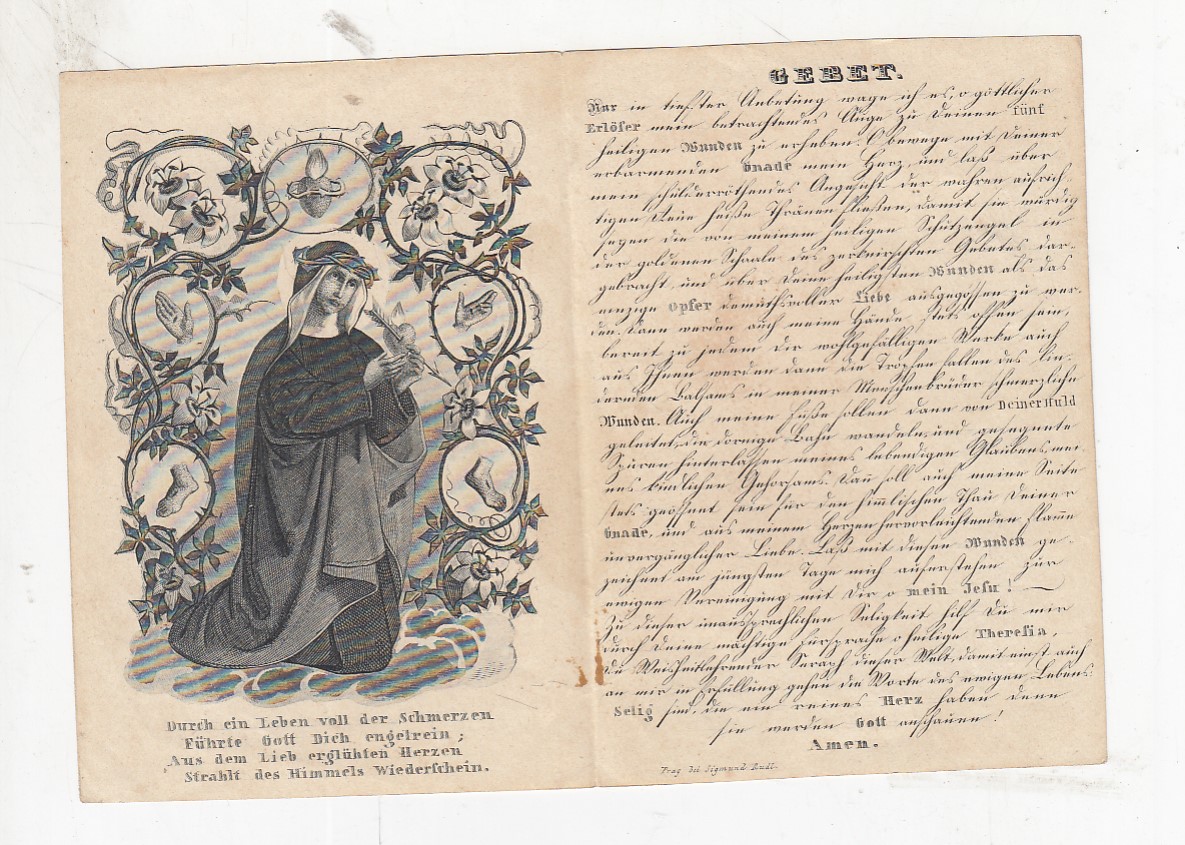 Durch ein Leben voll der Schmerzen
Führte Gott Dich engelrein ;
Aus dem Lieb erglühten Herzen
Strahlt des Himmels Wiederschein.
GEBET.
Nur in tiefster Anbetung wage ich es, o göttlicher
Erlöser mein betrachtendes Auge zu Deinen fünf
heiligen Wunden zu erheben. O bewege mit Deiner
erbarmenden Gnade mein Herz, und laß über
mein schulderröthendes Angesicht der wahren aufrich-
tigen Reue heiße Thränen fließen, damit sie würdig
seyen die von meinem heiligen Schutzengel in
der goldenen Schaale des zerknirschten Gebetes dar-
gebracht, und über Deine heiligsten Wunden als das
einzige Opfer demuthsvoller Liebe ausgegossen zu wer-
den. Dann werden auch meine Hände stets offen sein,
bereit zu jedem Dir wohlgefälligen Werke auch
aus Ihnen werden dann die Tropfen fallen des lin-
dernden Balsams in meiner Menschenbrüder schmerzliche
Wunden. Auch meine Füße sollen dann von Deiner Huld
geleitet, die dornige Bahn wandeln, und gesegnete
Spuren hinterlassen meines lebendigen Glaubens, mei-
nes kindlichen Gehorsams. Dan soll auch meine Seite
stets geöffnet sein für den himlischen Thau Deiner
Gnade, und aus meinem Herzen hervorleuchtenden Flame
unvergänglicher Liebe. Laß mit diesen Wunden ge-
zeichnet am jüngsten Tage mich auferstehen zur
ewigen Vereinigung mit Dir o mein Jesu! —
Zu dieser unaussprechlichen Seligkeit hilf Du mir
durch Deine mächtige Fürsprache o heilige Theresia,
du Weisheitlehrender Seraph dieser Welt, damit einst auch
an mir in Erfüllung gehen die Worte des ewigen Lebens:
Selig sind, die ein reines Herz haben denn
sie werden Gott anschauen!
Amen.
Prag bei Sigmund Rudl.